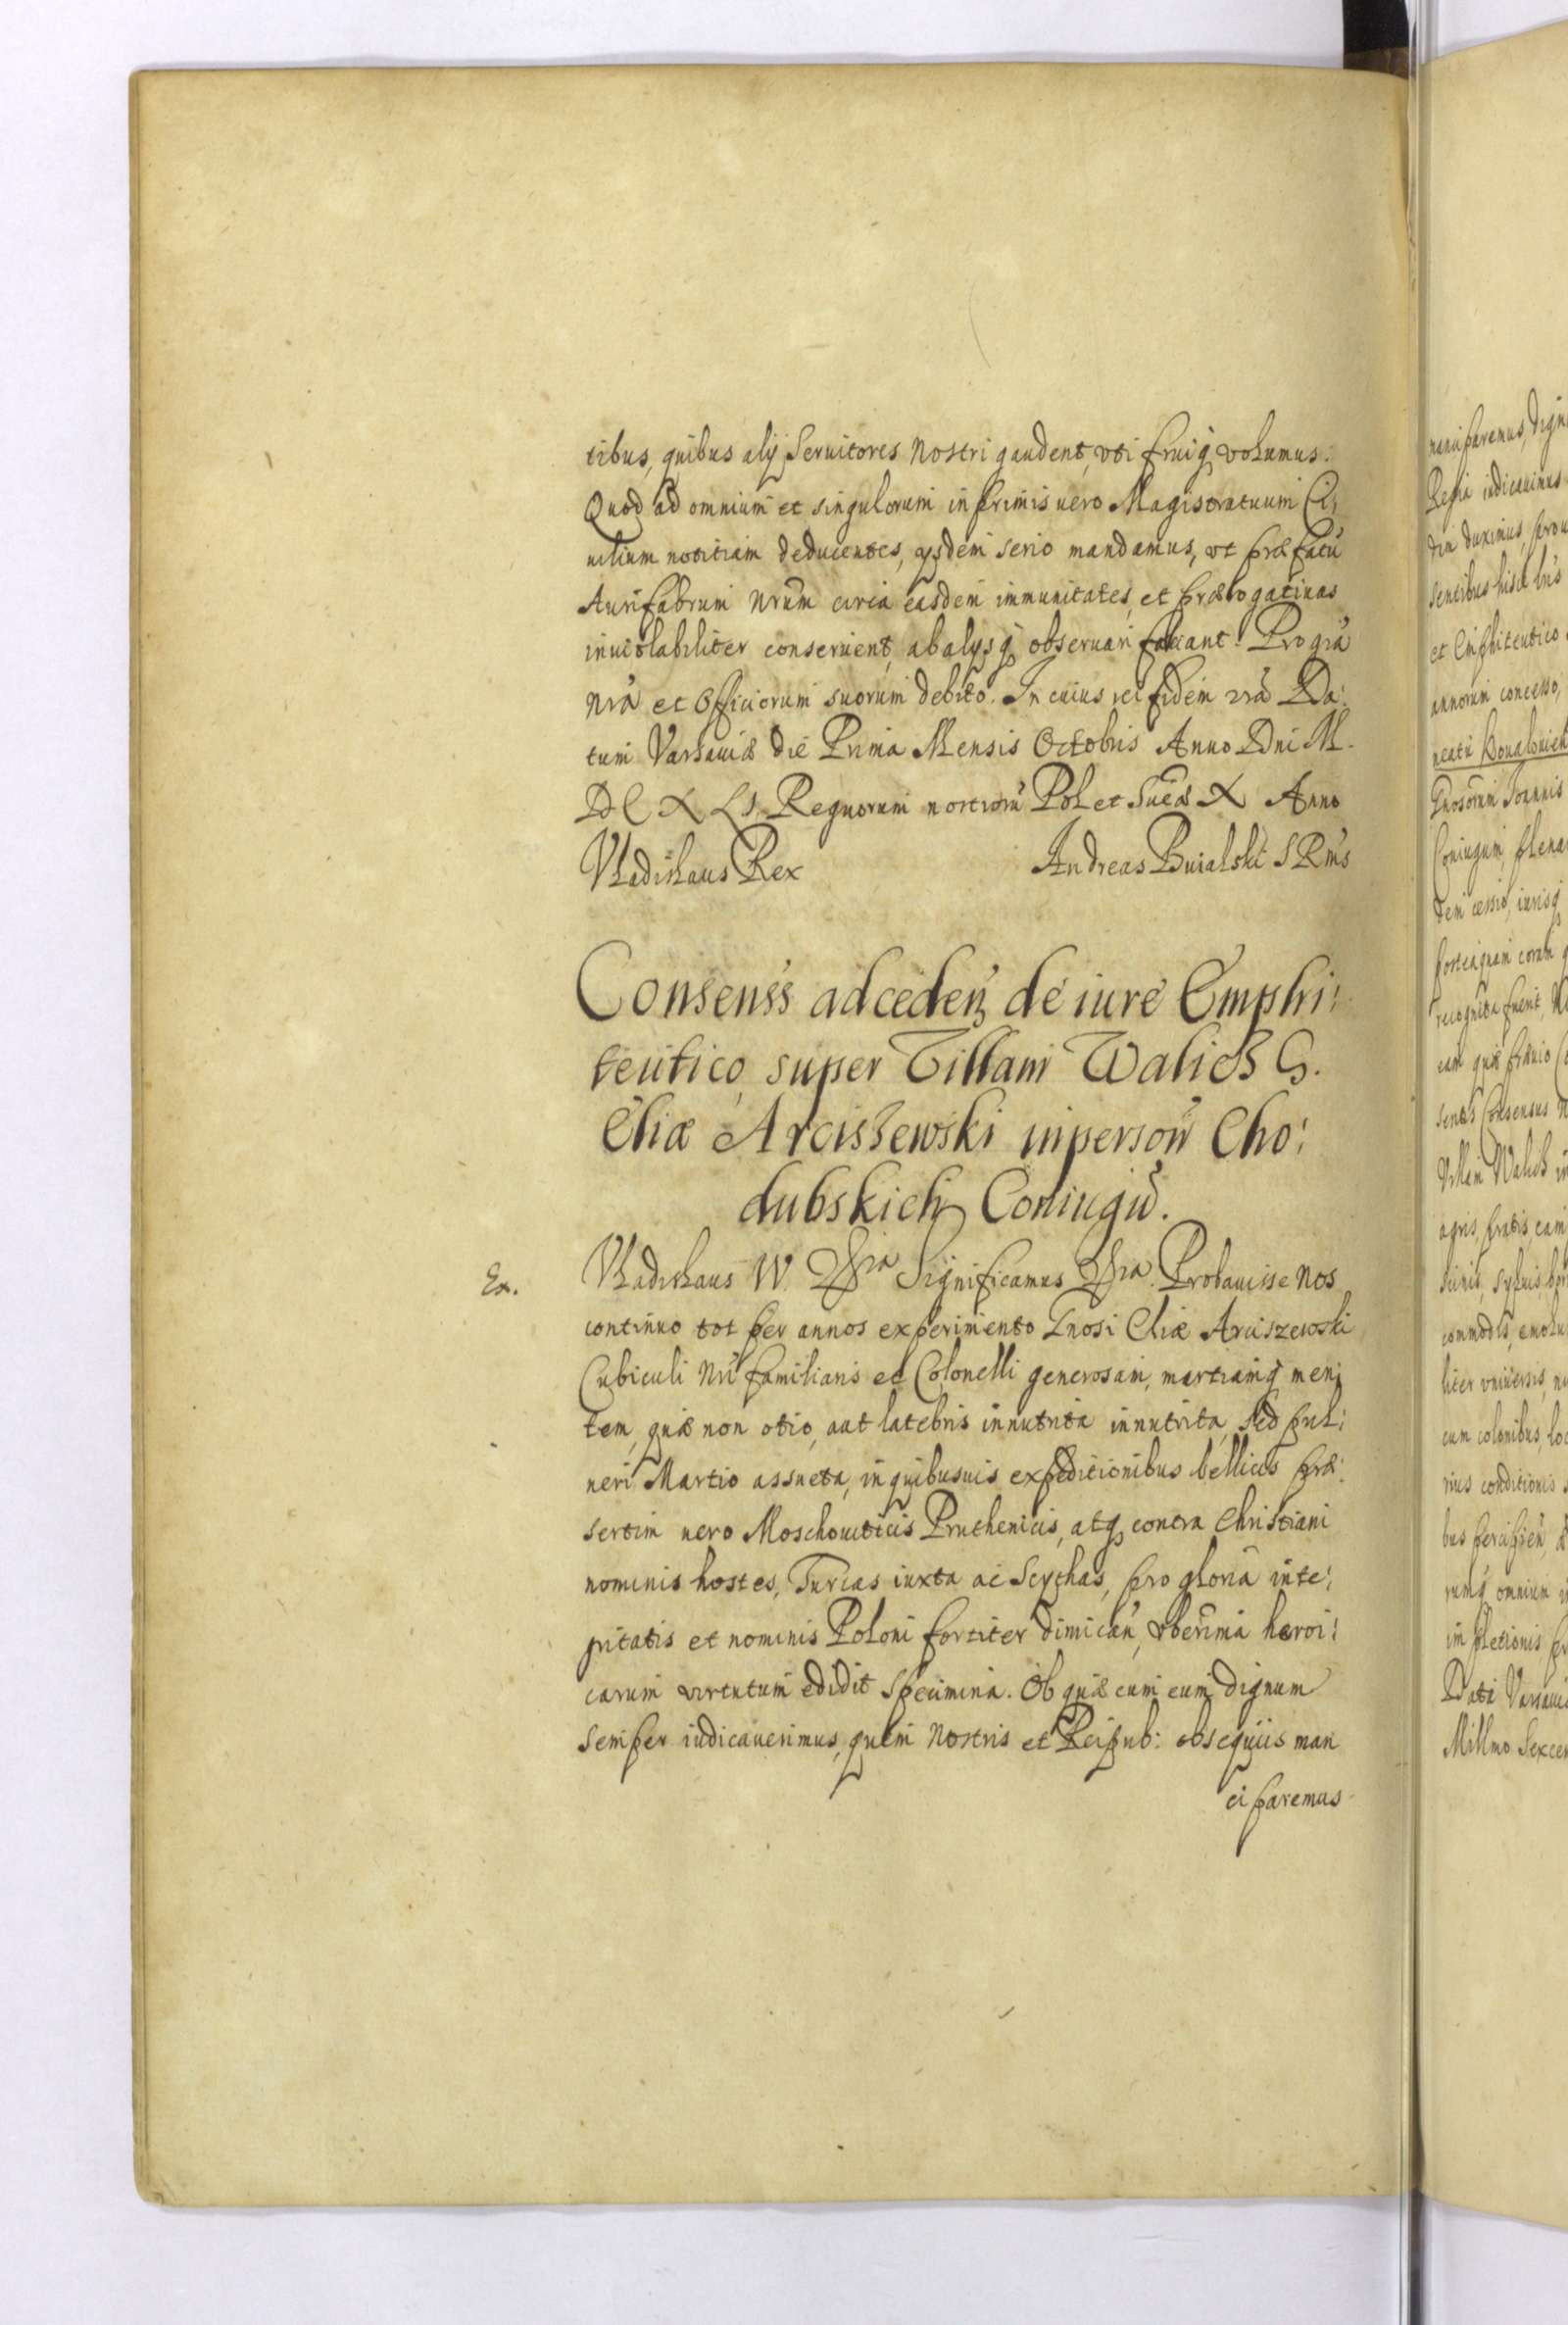 tibus, quibus alÿ Seruitores Nostri gaudent, vti fruiq; volumus.
Quod ad omnium et singulorum inprimis uero Magistratuum Ci:
uilium notitiam deducentes, ysdem serio mandamus, vt præfatū
Aurifabrum nrum circa easdem immunitates, et prærogatiuas
inuiolabiliter conseruent, ab alysq; observari faciant. Pro grā
nrā et Officiorum suorum debito. In cuius rei fidem nrā Da:
tum Varsauiæ die Prima Mensis Octobris Anno Dni M.
D C X L I. Regnorum nostrorū Pol et Sueæ X Anno
Vladislaus Rex Andreas Buialski S R Ms
Consens̄s ad ceden̄ de iure Emphi:
teutico, super Villam Walicz G.
Eliæ Arciszewski in person̄ Cho:
dubskich Coniugū.
Ex. Vladislaus IV. Significamus Probauisse nos
continuo tot per annos experimento Gnosi Eliæ Arciszewski
Cubiculi Nri familiaris et Colonelli generosam, martiamq; men:
tem, quæ non otio, aut latebris innutrita innutrita, sed pul:
ueri Martio assueta, in quibusuis expeditionibus bellicis præ:
sertim uero Moschouiticis Pruthenicis, atq; contra Christiani
nominis hostes, Turcas iuxta ac Scythas, pro gloria inte:
gritatis et nominis Poloni fortiter dimican̄, vberrima heroi:
carum virtutum edidit specimina. Ob quæ cum eum dignum
semper iudicauerimus, quem Nostris et Reipub: obsequiis man
ciparemus
manciparemus, dign
Regia iudicauimus
duximus, prou
sentibus hisce lris
et Emphiteutico
annorum concesso,
Gnosorum Joannis
Coniugum, plena
dem cessio, iurisq;
posteaquam coram
recognita fuerit, N
eam quæ præuio
Consensus N
Villam Walicz in
agris, pratis, cam
syluis
commodis, emolu
liter vniuersis, n
cum colonibus, lo
rius conditionis
bus percipien̄
rumq; omnium i
impletionis
Datū Varsauiæ
Millmo Sexcen